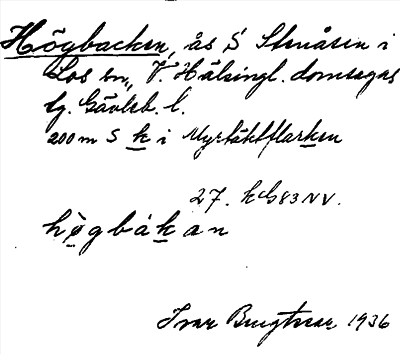 Högbacken, ås S Stenåsen i
Los sn, V. Hälsingl. domsagas
tg. Gävleb. l.
200 m S k i Myrtäktflarken
27. hcb 83 NV.
høgbákan
Ivar Bengtsson 1936